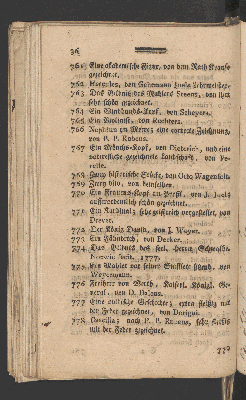 36
761 Eine akademische Figur, von dem Rath Krause
gezeichnet.
762 Hercules, von
763 Das Bildniß des Mahlers Severs, von ihm
sehr schön gezeichnet.
764 Ein Windhunds-Kopf, von
765 Ein Violinist, von
766 Neptunus im Meere, eine correcte Zeichnung,
von P. P. Rubens.
767 Ein Mönchs-Kopf, von Dieterich, und eine
natürliche gezeichnete Landschaft, von
768 Zwey historische Stücke, von Otto Wagenfeld.
769 Zwey dito, von demselben.
770 Ein Frauens-Kopf im Profil, von J.
ausserordentlich schön gezeichnet.
771 Ein Kardinal, sehr geistreich vorgestellet, von
772 Der König David, von J. Wagner.
773 Ein Fähnderich, von Decker.
774 Das Bildniß des seel. Herrn
1777.
775 Ein Mahler vor seiner Staffeley sitzend, von
Weyermann.
776 Freyherr von Werth, Kaiserl. Königl. Ge-
neral, von D.
777 Eine antique Geschichte; extra fleißig mit
der Feder gezeichnet, von
778 Cäcilia; nach P. P. Rubens, sehr
mit der Feder gezeichnet.
779